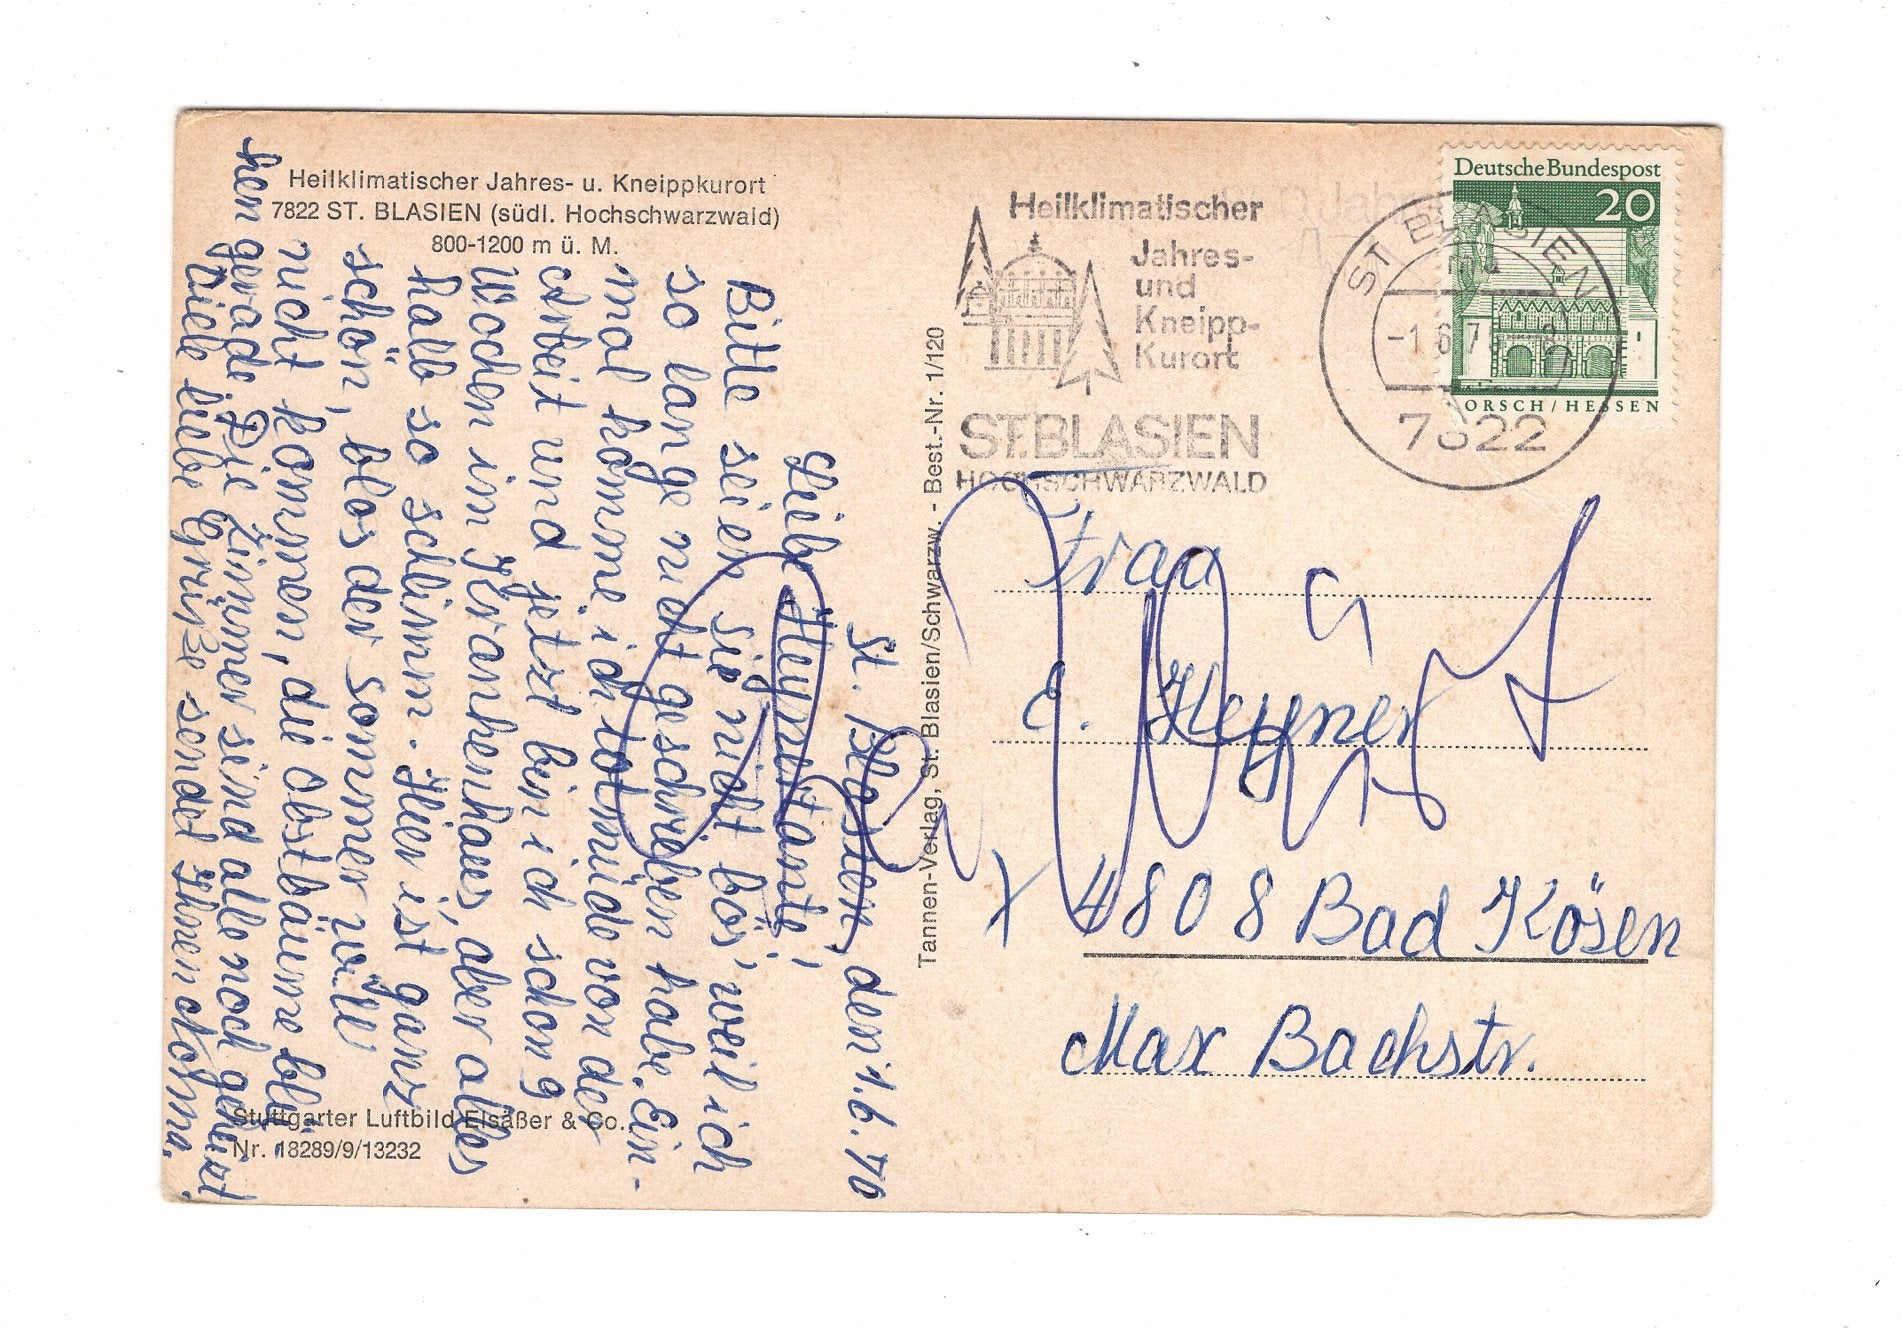 Heilklimatischer Jahres- u. Kneippkurort
7822 ST. BLASIEN (südl. Hochschwarzwald)
800-1200 m ü. M.
St. Blasien, den 1.6.70
Leibe Heynertante!
Bitte seien sie nicht bös, weil ich
so lange nicht geschrieben habe. Ein-
mal komme ich totmüde von der
Arbeit und jetzt bin ich schon 9
Wochen im Krankenhaus, aber alles
halb so schlimm. Hier ist ganz
schön, blos der sommer will
nicht kommen, die obstbäume blü-
hen gerade. Die Zimmer sind alle noch geheizt
Viele liebe Grüße sendet Ihnen
Stuttgarter Luftbild Elsäßer & Co.
Nr. 18289/9/13232
Tannen-Verlag, St. Blasien/Schwarzw. - Best.-Nr. 1/120
Heilklimatischer
Jahres-
und
Kneipp-
Kurort
ST. BLASIEN
HOCHSCHWARZWALD
Deutsche Bundespost
20
LORSCH/HESSEN
ST BLASIEN
-1.6.7
7822
Frau
E. Heyner
X 4808 Bad Kösen
Max Bachstr.